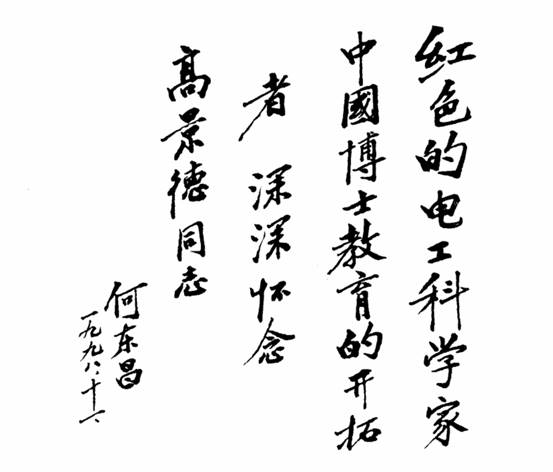 红色的电工科学家
中國博士教育的开拓
者 深深怀念
高景德同志
何东昌
一九九八·十一